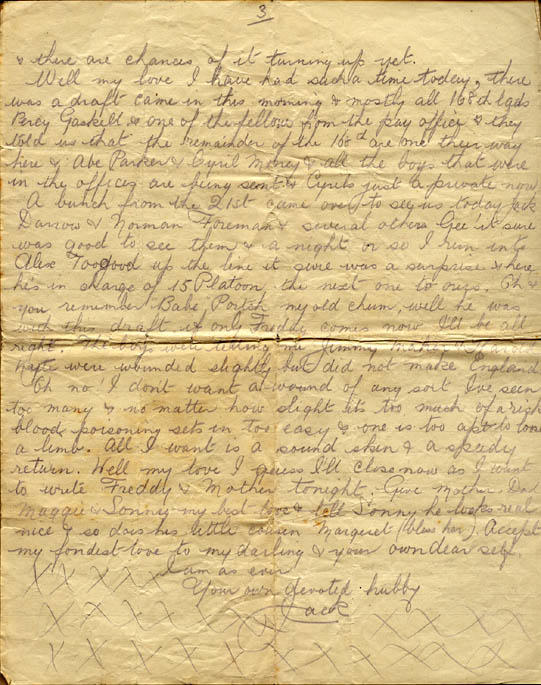 3
& there are chances of it turning up yet.
Well my love I have had such a time today, there
was a draft came in this morning & mostly all 168th lads
Percy Gaskell & one of the fellows from the pay office & they
told us that the remainder of the 168th are one their way
here & Abe Parker & Cyril & all the boys that were
in the offices are being sent & Cyrils just a private now.
A bunch from the 21st came over to see us today Jack
Darrow & Norman Foreman & several others Gee! it sure
was good to see them & a night or so I run into
Alex Toogood up the line it sure was a surprise & here
he's in charge of 15 Platoon the next one to ours. Oh &
you remember Babe Portch my old chum, well he was
with this draft if only Freddy comes now I'll be all
right. The boys were telling me Jimmy &
were wounded slightly but did not make England
Oh no! I don't want a wound of any sort I've seen
too many & no matter how slight it's too much of a risk
blood poisoning sets in too easy & one is too apt to lose
a limb. All I want is a sound skin & a speedy
return. Well my love I guess I'll close now as I want
to write Freddy & Mother tonight. Give Mother Dad
Maggie & Sonny my best love & tell Sonny he looks real
nice & so does his little cousin Margeret (bless her). Accept
my fondest love to my darling & your own dear self.
I am as ever
Your own devoted hubby
Jack
X X X X X X X X X